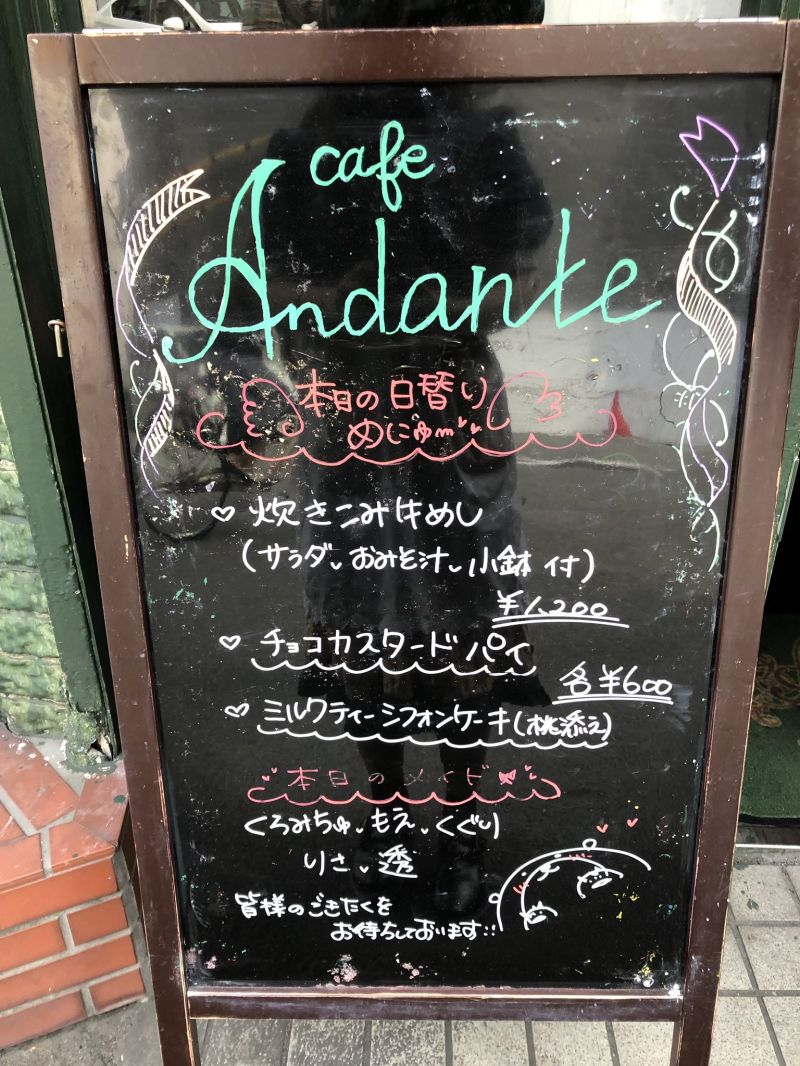 cafe
Andante
本日の日替り
めにゅー
♡ 炊きこみ牛めし
(サラダ、おみそ汁、小鉢 付)
¥1,200
♡ チョコカスタードパイ
各¥600
♡ ミルクティーシフォンケーキ(桃添え)
本日のメイド
くろみちゅ、もえ、くぐり
りさ、透
皆様のごきたくを
お待ちしております